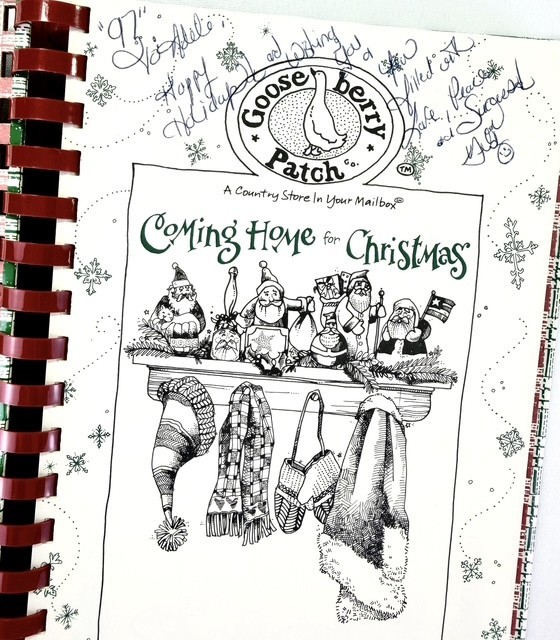 "97"
To Adele,
Happy
Holidays! and Wishing You a
filled with
Love, Peace
and Success
Goose berry
Patch Co.
TM
A Country Store In Your Mailbox®
Coming Home for Christmas